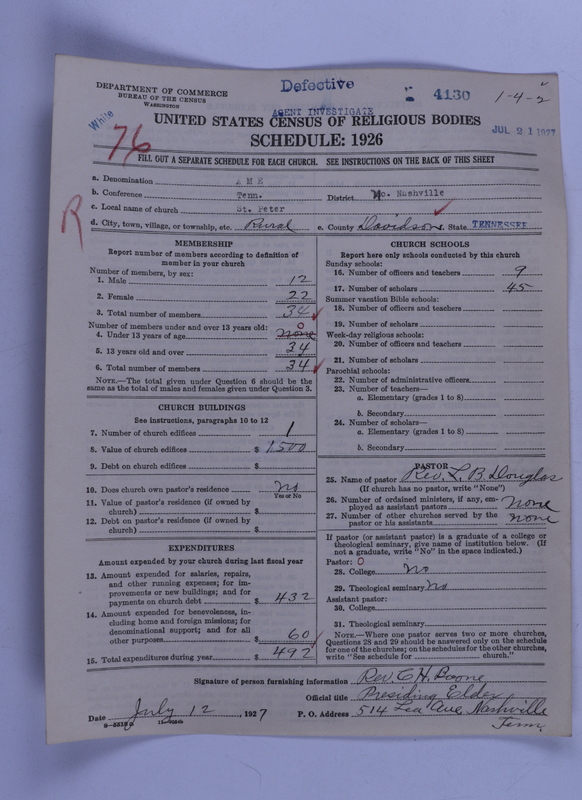 DEPARTMENT OF COMMERCE
BUREAU OF THE CENSUS
WASHINGTON
Defective
4130
1-4-2
White
76
AGENT INVESTIGATE
UNITED STATES CENSUS OF RELIGIOUS BODIES
JUL 21 1927
SCHEDULE: 1926
FILL OUT A SEPARATE SCHEDULE FOR EACH CHURCH. SEE INSTRUCTIONS ON THE BACK OF THIS SHEET
R
a. Denomination A M E
b. Conference Tenn. District No. Nashville
c. Local name of church St. Peter
d. City, town, village, or township, etc. Rural e. County Davidson State TENNESSEE
MEMBERSHIP
Report number of members according to definition of
member in your church
Number of members, by sex:
1. Male 12
2. Female 22
3. Total number of members 34
Number of members under and over 13 years old:
4. Under 13 years of age none 0
5. 13 years old and over 34
6. Total number of members 34
NOTE.—The total given under Question 6 should be the
same as the total of males and females given under Question 3.
CHURCH BUILDINGS
See instructions, paragraphs 10 to 12
7. Number of church edifices 1
8. Value of church edifices $ 1,500
9. Debt on church edifices $
10. Does church own pastor's residence No
Yes or No
11. Value of pastor's residence (if owned by
church) $
12. Debt on pastor's residence (if owned by
church) $
EXPENDITURES
Amount expended by your church during last fiscal year
13. Amount expended for salaries, repairs,
and other running expenses; for im-
provements or new buildings; and for
payments on church debt $ 432
14. Amount expended for benevolences, in-
cluding home and foreign missions; for
denominational support; and for all
other purposes $ 60
15. Total expenditures during year $ 492
CHURCH SCHOOLS
Report here only schools conducted by this church
Sunday schools:
16. Number of officers and teachers 9
17. Number of scholars 45
Summer vacation Bible schools:
18. Number of officers and teachers
19. Number of scholars
Week-day religious schools:
20. Number of officers and teachers
21. Number of scholars
Parochial schools:
22. Number of administrative officers
23. Number of teachers—
a. Elementary (grades 1 to 8)
b. Secondary
24. Number of scholars—
a. Elementary (grades 1 to 8)
b. Secondary
PASTOR
25. Name of pastor Rev. L. B. Douglas
(If church has no pastor, write "None")
26. Number of ordained ministers, if any, em-
ployed as assistant pastors none
27. Number of other churches served by the
pastor or his assistants none
If pastor (or assistant pastor) is a graduate of a college or
theological seminary, give name of institution below. (If
not a graduate, write "No" in the space indicated.)
Pastor: 0
28. College No
29. Theological seminary No
Assistant pastor:
30. College
31. Theological seminary
NOTE.—Where one pastor serves two or more churches,
Questions 28 and 29 should be answered only on the schedule
for one of the churches; on the schedules for the other churches,
write "See schedule for church."
Signature of person furnishing information Rev. C. H. Boone
Official title Presiding Elder
Date July 12, 1927 P. O. Address 514 Lea Ave, Nashville
Tenn.